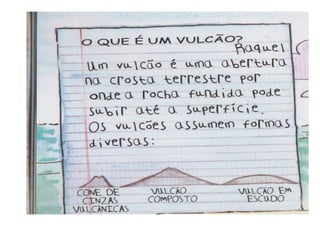 O QUE É UM VULCÃO?
Raquel
Um vulcão é uma abertura
na crosta terrestre por
onde a rocha fundida pode
subir até a superfície.
Os vulcões assumem formas
diversas:
CONE DE
CINZAS
VULCÂNICAS
VULCÃO
COMPOSTO
VULCÃO EM
ESCUDO